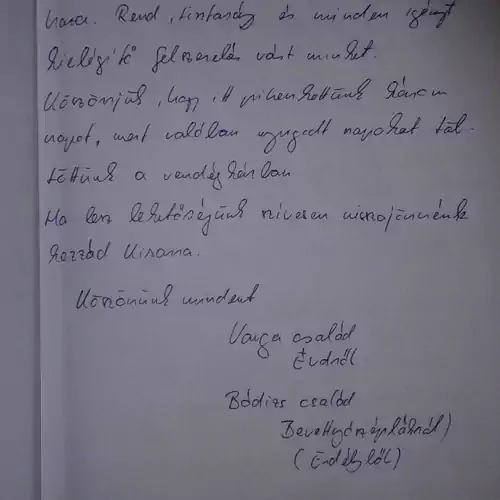 háza. Rend, tisztaság és minden igényt
kielégítő felszerelés várt minket.
Köszönjük, hogy itt pihenhettünk három
napot, mert valóban nyugodt napokat töl-
töttünk a vendégházban
Ha lesz lehetőségünk szívesen visszajönnénk
hozzád Kisanna.
Köszönünk mindent
Varga család
Érdről
Bódizs család
(Erdélyből)